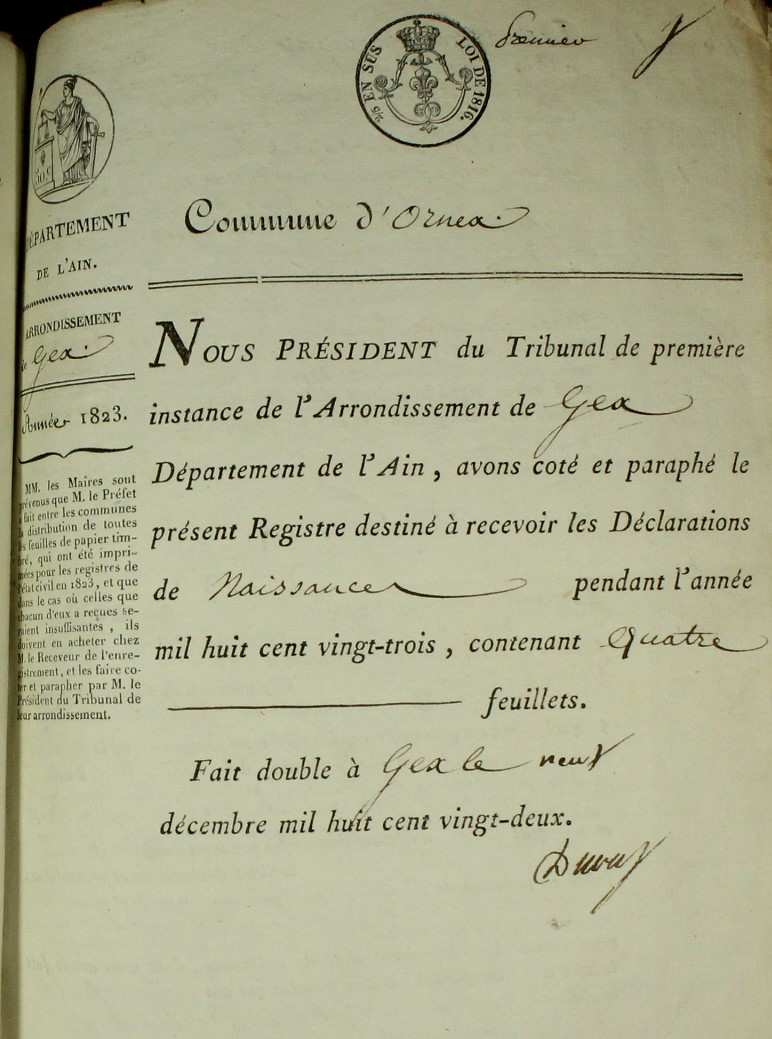 Premier
2/5 EN SUS LOI DE 1816.
50.C
DÉPARTEMENT
DE L'AIN.
ARRONDISSEMENT
de Gex.
Année 1823.
MM. les Maires sont
prévenus que M. le Préfet
a fait entre les communes
la distribution de toutes
les feuilles de papier tim-
bré, qui ont été impri-
mées pour les registres de
l'état civil en 1823, et que
dans le cas où celles que
chacun d'eux a reçues se-
raient insuffisantes, ils
doivent en acheter chez
M. le Receveur de l'enre-
gistrement, et les faire co-
ter et parapher par M. le
Président du Tribunal de
leur arrondissement.
Commune d'Ornex.
NOUS PRÉSIDENT du Tribunal de première
instance de l'Arrondissement de Gex
Département de l'Ain, avons coté et paraphé le
présent Registre destiné à recevoir les Déclarations
de Naissances pendant l'année
mil huit cent vingt-trois, contenant Quatre
feuillets.
Fait double à Gex le neuf
décembre mil huit cent vingt-deux.